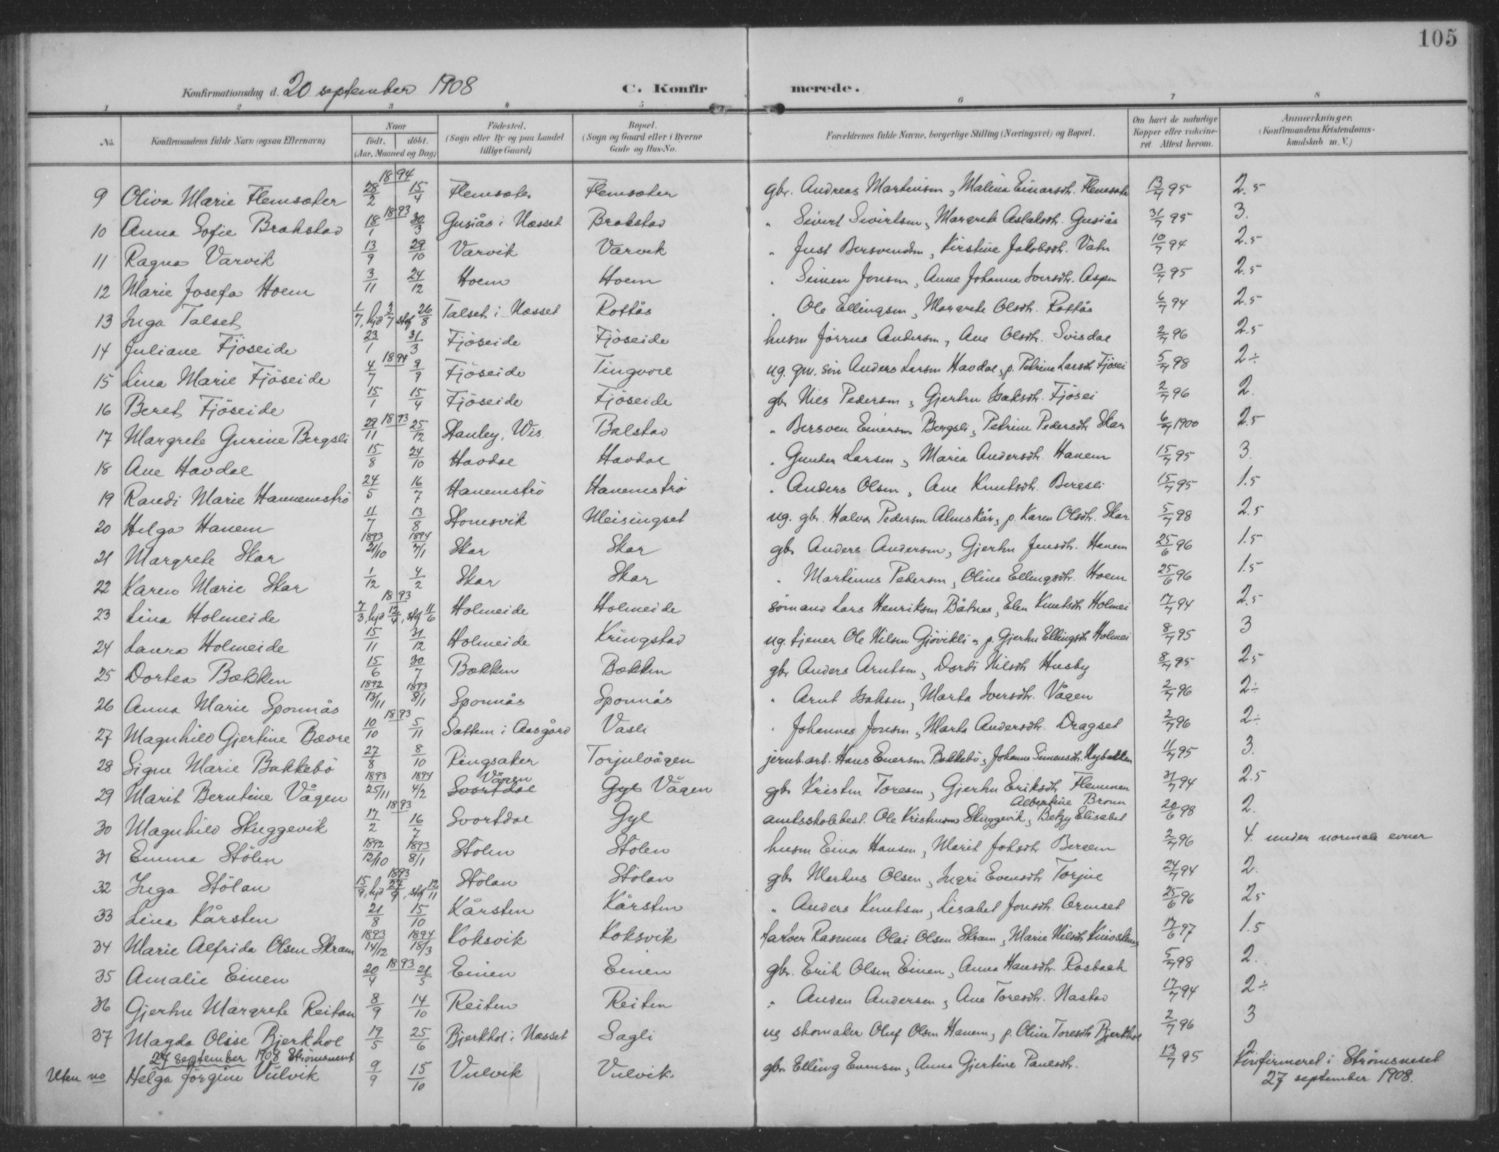 105
Konfirmationsdag d. 20 september 1908 C. Konfirmerede.
1 2 3 4 5 6 7 8
No. Konfirmandens fulde Navn (ogsaa Efternavn) Naar født, døbt. (Aar, Maaned og Dag) Fødested. (Sogn eller By og paa Landet tillige Gaard) Bopæl. (Sogn og Gaard eller i Byerne Gade og Hus-No. Forældrenes fulde Navne, borgerlige Stilling (Næringsvei) og Bopæl. Om havt de naturlige Kopper eller vakcineret. Attest herom. Anmærkninger. (Konfirmandens Kristendomskundskab m. V.)
9 Oliva Marie Flemsæter 1894 28/2 15/4 Flemsæter Flemsæter gbr. Andreas Martinsen, Malena Einarsdt. Flemsæter 13/7 95 2.5
10 Anna Sofie Brakstad 1893 18/1 30/3 Gusiås i Næsset Brakstad " Sivert Sivertsen, Margrete Aslaksdt. Gusiås 31/7 95 3.
11 Ragna Varvik 13/9 29/10 Varvik Varvik " Just Bersvendsen, Kirstine Jakobsdt. Vatn 10/7 94 2.5
12 Marie Josefa Hoem 3/11 24/12 Hoem Hoem " Simen Jonsen, Anne Johanna Iversdt. Aspen 13/7 95 2.5
13 Inga Talset 1/7, hjd 2/7 stf 26/8 Talset i Næsset Rottås " Ole Ellingsen, Margrete Olsdt. Rottås 6/7 94 2.5
14 Juliane Fjöseide 23/1 31/3 Fjöseide Fjöseide husm Jörnus Andersen, Ane Olsdt. Svisdal 2/7 96 2.5
15 Lina Marie Fjöseide 1894 4/7 9/9 Fjöseide Tingvore ug. gm. sön Anders Larsen Havdal, p. Petrine Larsdt Fjösei 5/7 98 2÷
16 Beret Fjöseide 15/1 15/4 Fjöseide Fjöseide gbr Nils Pedersen, Gjertru Isaksdt. Fjösei 2/7 96 2.
17 Margrete Gurine Bergsli 1893 29/11 25/12 Stanley, Wis Balstad " Bersven Einersen Bergsli, Petrine Pedersdt Skar 6/7 1900 2.5
18 Ane Havdal 15/8 24/10 Havdal Havdal " Gunder Larsen, Maria Andersdt. Hanem 15/7 95 3.
19 Randi Marie Hannemströ 24/5 16/7 Hanemströ Hanemströ " Anders Olsen, Ane Knutsdt. Beresli 15/7 95 1.5
20 Helga Hanem 11/7 13/8 Stomsvik Meisingset ug. gbr. Halvor Pedersen Almskår, p. Karen Olsdt. Skar 5/7 98 2.5
21 Margrete Skar 1893 21/10 1894 7/1 Skar Skar gbr Anders Andersen, Gjertru Jensdt. Hanem 25/6 96 1.5
22 Karen Marie Skar 1/12 4/2 Skar Skar " Martinus Pedersen, Olina Ellingsdt. Hoem 25/6 96 1.5
23 Lina Holmeide 1893 7/3, hjd 12/4, stf 11/6 Holmeide Holmeide sömand Lars Henriksen Båtnes, Elen Knutsdt Holmei 17/7 94 2.5
24 Laura Holmeide 15/11 31/12 Holmeide Kringstad ug. tjener Ole Nilsen Gjövikli, p. Gjertru Ellingsdt Holmei 8/7 95 3
25 Dortea Bækken 15/6 30/7 Bækken Bækken gbr Anders Arntsen, Dordi Nilsdt Husby 8/7 95 2.5
26 Anna Marie Sponnås 1892 13/11 1893 8/1 Sponnås Sponnås " Arnt Isaksen, Marta Iversdt. Vågen 2/7 96 2÷
27 Magnhild Gjertine Bævre 1893 10/10 5/11 Sættem i Aasgård Vasli " Johannes Jonsen, Marta Andersdt. Dragset 2/7 96 2÷
28 Signe Marie Bakkebö 27/8 8/10 Ringsaker Torjulvågen jernb.arb. Hans Enersen Bakkebö, Johanne Simensdt. Mybakken 11/7 95 3.
29 Marit Berntine Vågen 1893 25/11 1894 4/2 Vågen Svortdal Gyl Vågen gbr Kristen Toresen, Gjertru Eriksdt Flemmen 31/7 94 2.5
30 Magnhild Skuggevik 1893 17/2 16/7 Svortdal Gyl amtsskolebest. Ole Kristensen Skuggevik, Betzy Elisabet Albertine Brown 20/6 98 2.
31 Emma Stölen 1892 12/10 1893 8/1 Stölen Stölen husm Einar Hansen, Marit Johsdt Bercem 2/7 96 4. under normale evner
32 Inga Stölan 1893 15/9, hjd 24/9, stf 12/11 Stölan Stölan gbr Markus Olsen, Ingri Evensdt Torjul 24/7 94 2.
33 Lina Kårsten 21/8 15/10 Kårsten Kårsten " Anders Knutsen, Lisabet Jonsdt. Ormset 25/6 96 2.5
34 Marie Alfrida Olsen Skram 1893 14/12 1894 18/3 Koksvik Koksvik farver Rasmus Olai Olsen Skram, Marie Nilsdt 17/6 97 1.5
35 Amalie Einen 1893 20/4 21/5 Einen Einen gbr. Erik Olsen Einen, Anna Hansdt. Rosbak 5/7 98 2.
36 Gjertru Margrete Reitan 8/9 14/10 Reiten Reiten " Anders Andersen, Ane Toresdt. Nastad 17/7 94 2÷
37 Magda Olise Bjerkhol 19/5 25/6 Bjerkhol i Næsset Sagli ug skomaker Oluf Olsen Hanem, p. Oline Toresdt Bjerkhol 2/7 96 3
27 september 1908 Strömsneset
Uten no Helga Jörgine Vulvik 9/9 15/10 Vulvik Vulvik gbr Elling Evensen, Anna Gjertine Paulsdt. 13/7 95 2 Konfirmeret i Strömsneset
27 september 1908.